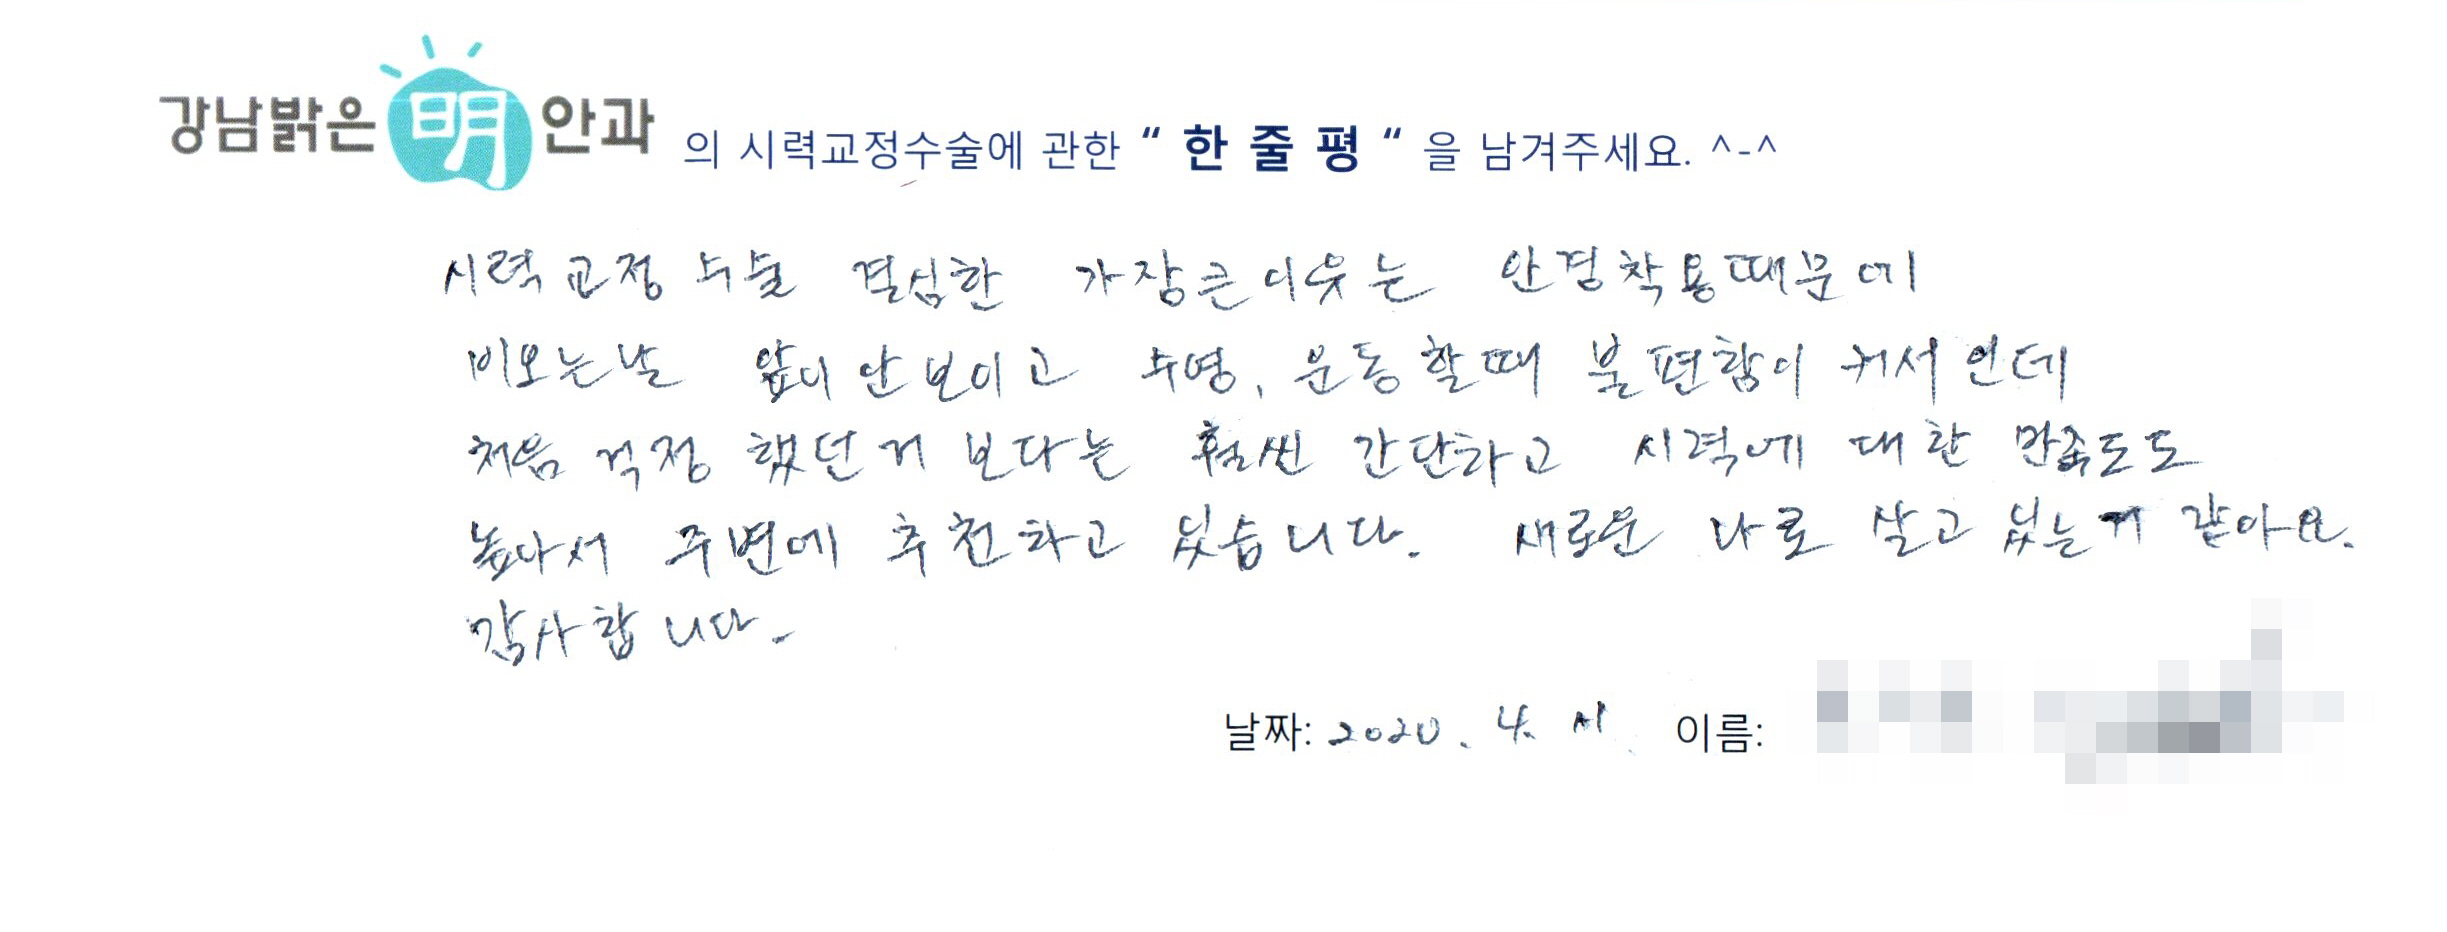 강남밝은 明 안과 의 시력교정수술에 관한 “ 한 줄 평 “ 을 남겨주세요. ^-^
시력교정 수술 결심한 가장큰 이윳는 안경착용때문에
비오는날 앞이 안보이고 수영, 운동할때 불편함이 커서인데
처음 걱정 했던거 보다는 훨씬 간단하고 시력에 대한 만족도도
높아서 주변에 추천하고 있습니다. 새로운 나로 살고 있는거 같아요.
감사합니다.
날짜: 2020. 4. 이름: